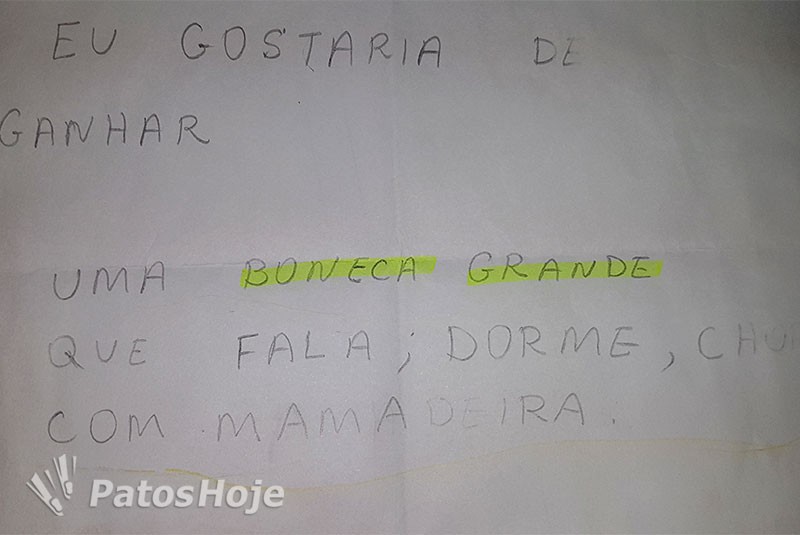 EU GOSTARIA DE
GANHAR
UMA BONECA GRANDE
QUE FALA; DORME,
COM MAMADEIRA.
PatosHoje